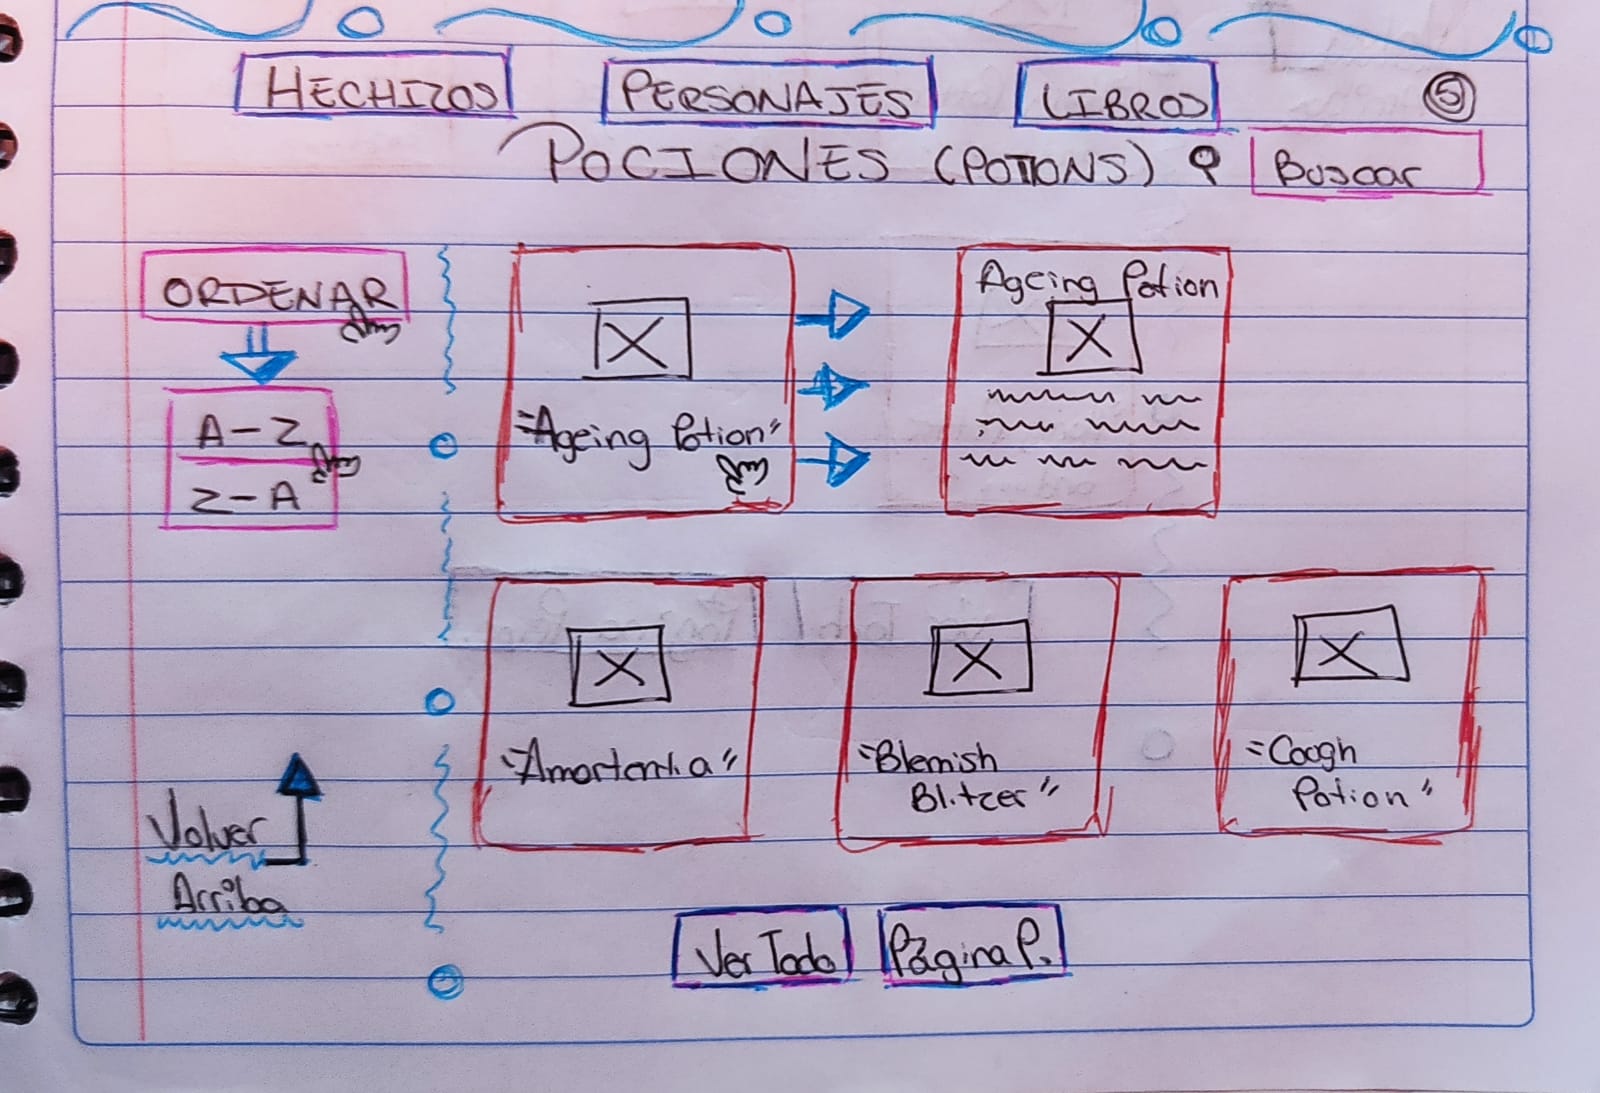 HECHIZOS
PERSONAJES
LIBROS
5
POCIONES (POTIONS)
Buscar
ORDENAR
A-Z
Z-A
"Ageing Potion"
Ageing Potion
"Amortentia"
"Blemish
Blitzer"
"Cough
Potion"
Volver
Arriba
Ver Todo
Página P.